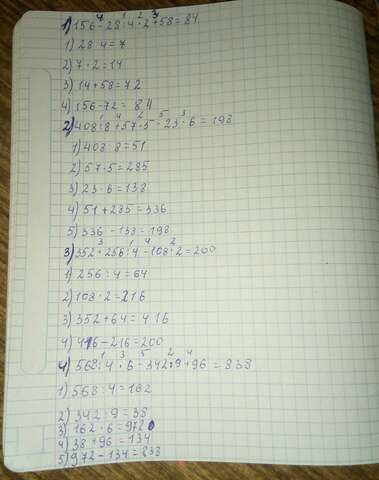 1) 156 - 28 : 4 · 2 + 58 = 84
1) 28 : 4 = 7
2) 7 · 2 = 14
3) 14 + 58 = 72
4) 156 - 72 = 84
2) 408 : 8 + 57 · 5 - 23 · 6 = 198
1) 408 : 8 = 51
2) 57 · 5 = 285
3) 23 · 6 = 138
4) 51 + 285 = 336
5) 336 - 138 = 198
3) 352 + 256 : 4 - 108 · 2 = 200
1) 256 : 4 = 64
2) 108 · 2 = 216
3) 352 + 64 = 416
4) 416 - 216 = 200
4) 568 : 4 · 6 - 342 : 9 + 96 = 838
1) 568 : 4 = 162
2) 342 : 9 = 38
3) 162 · 6 = 972
4) 38 + 96 = 134
5) 972 - 134 = 838